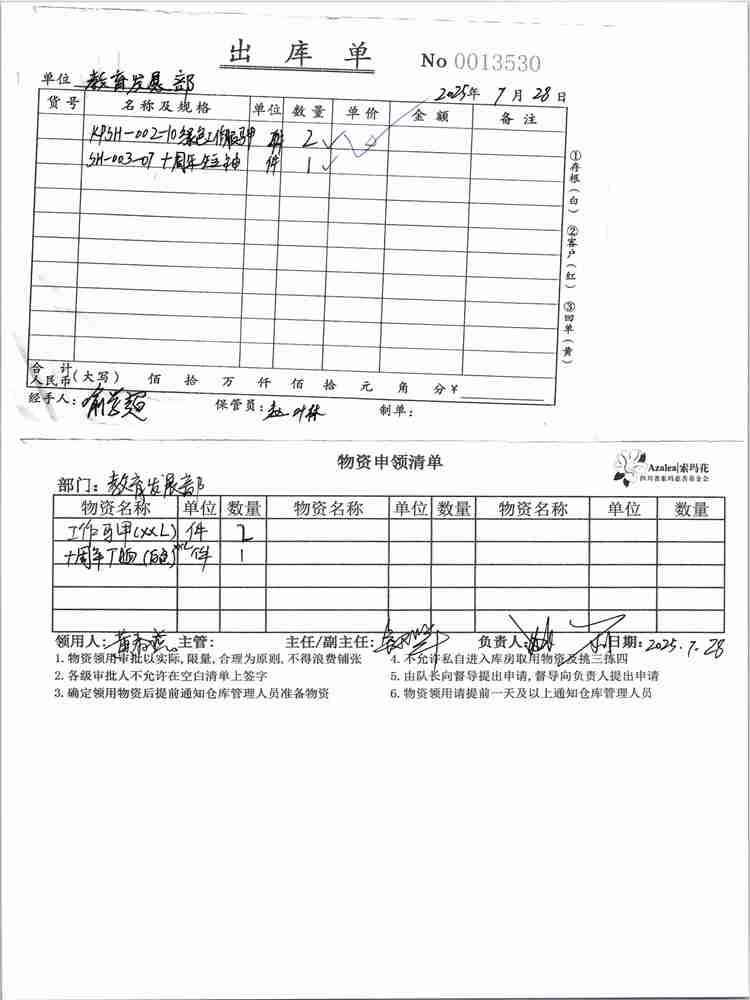 出 库 单
No 0013530
单位 教育发展部
2025年 7 月 28 日
货号 名称及规格 单位 数量 单价 金额 备注
KPSH-002-10绿色工作服马甲 件 2
SH-003-07 十周年短袖 件 1
①存根(白) ②客户(红) ③回单(黄)
合计人民币(大写) 佰 拾 万 仟 佰 拾 元 角 分¥
经手人: 保管员: 制单:
物资申领清单
Azalea|索玛花
四川省索玛慈善基金会
部门: 教育发展部
物资名称 单位 数量 物资名称 单位 数量 物资名称 单位 数量
工作马甲(XXL) 件 2
十周年T恤(白色) 件 1
领用人: 主管: 主任/副主任: 负责人: 日期: 2025.7.28
1.物资领用审批以实际,限量,合理为原则,不得浪费铺张
4.不允许私自进入库房取用物资及挑三拣四
2.各级审批人不允许在空白清单上签字
5.由队长向督导提出申请,督导向负责人提出申请
3.确定领用物资后提前通知仓库管理人员准备物资
6.物资领用请提前一天及以上通知仓库管理人员